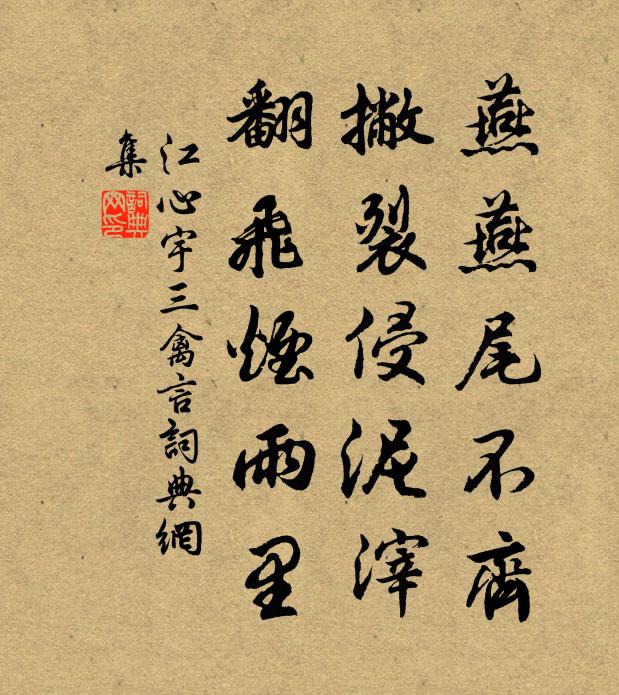 燕燕尾不齊
撇裂侵泥滓
翻飛煙雨里
江心宇三禽言詞典網
集
詞典網印